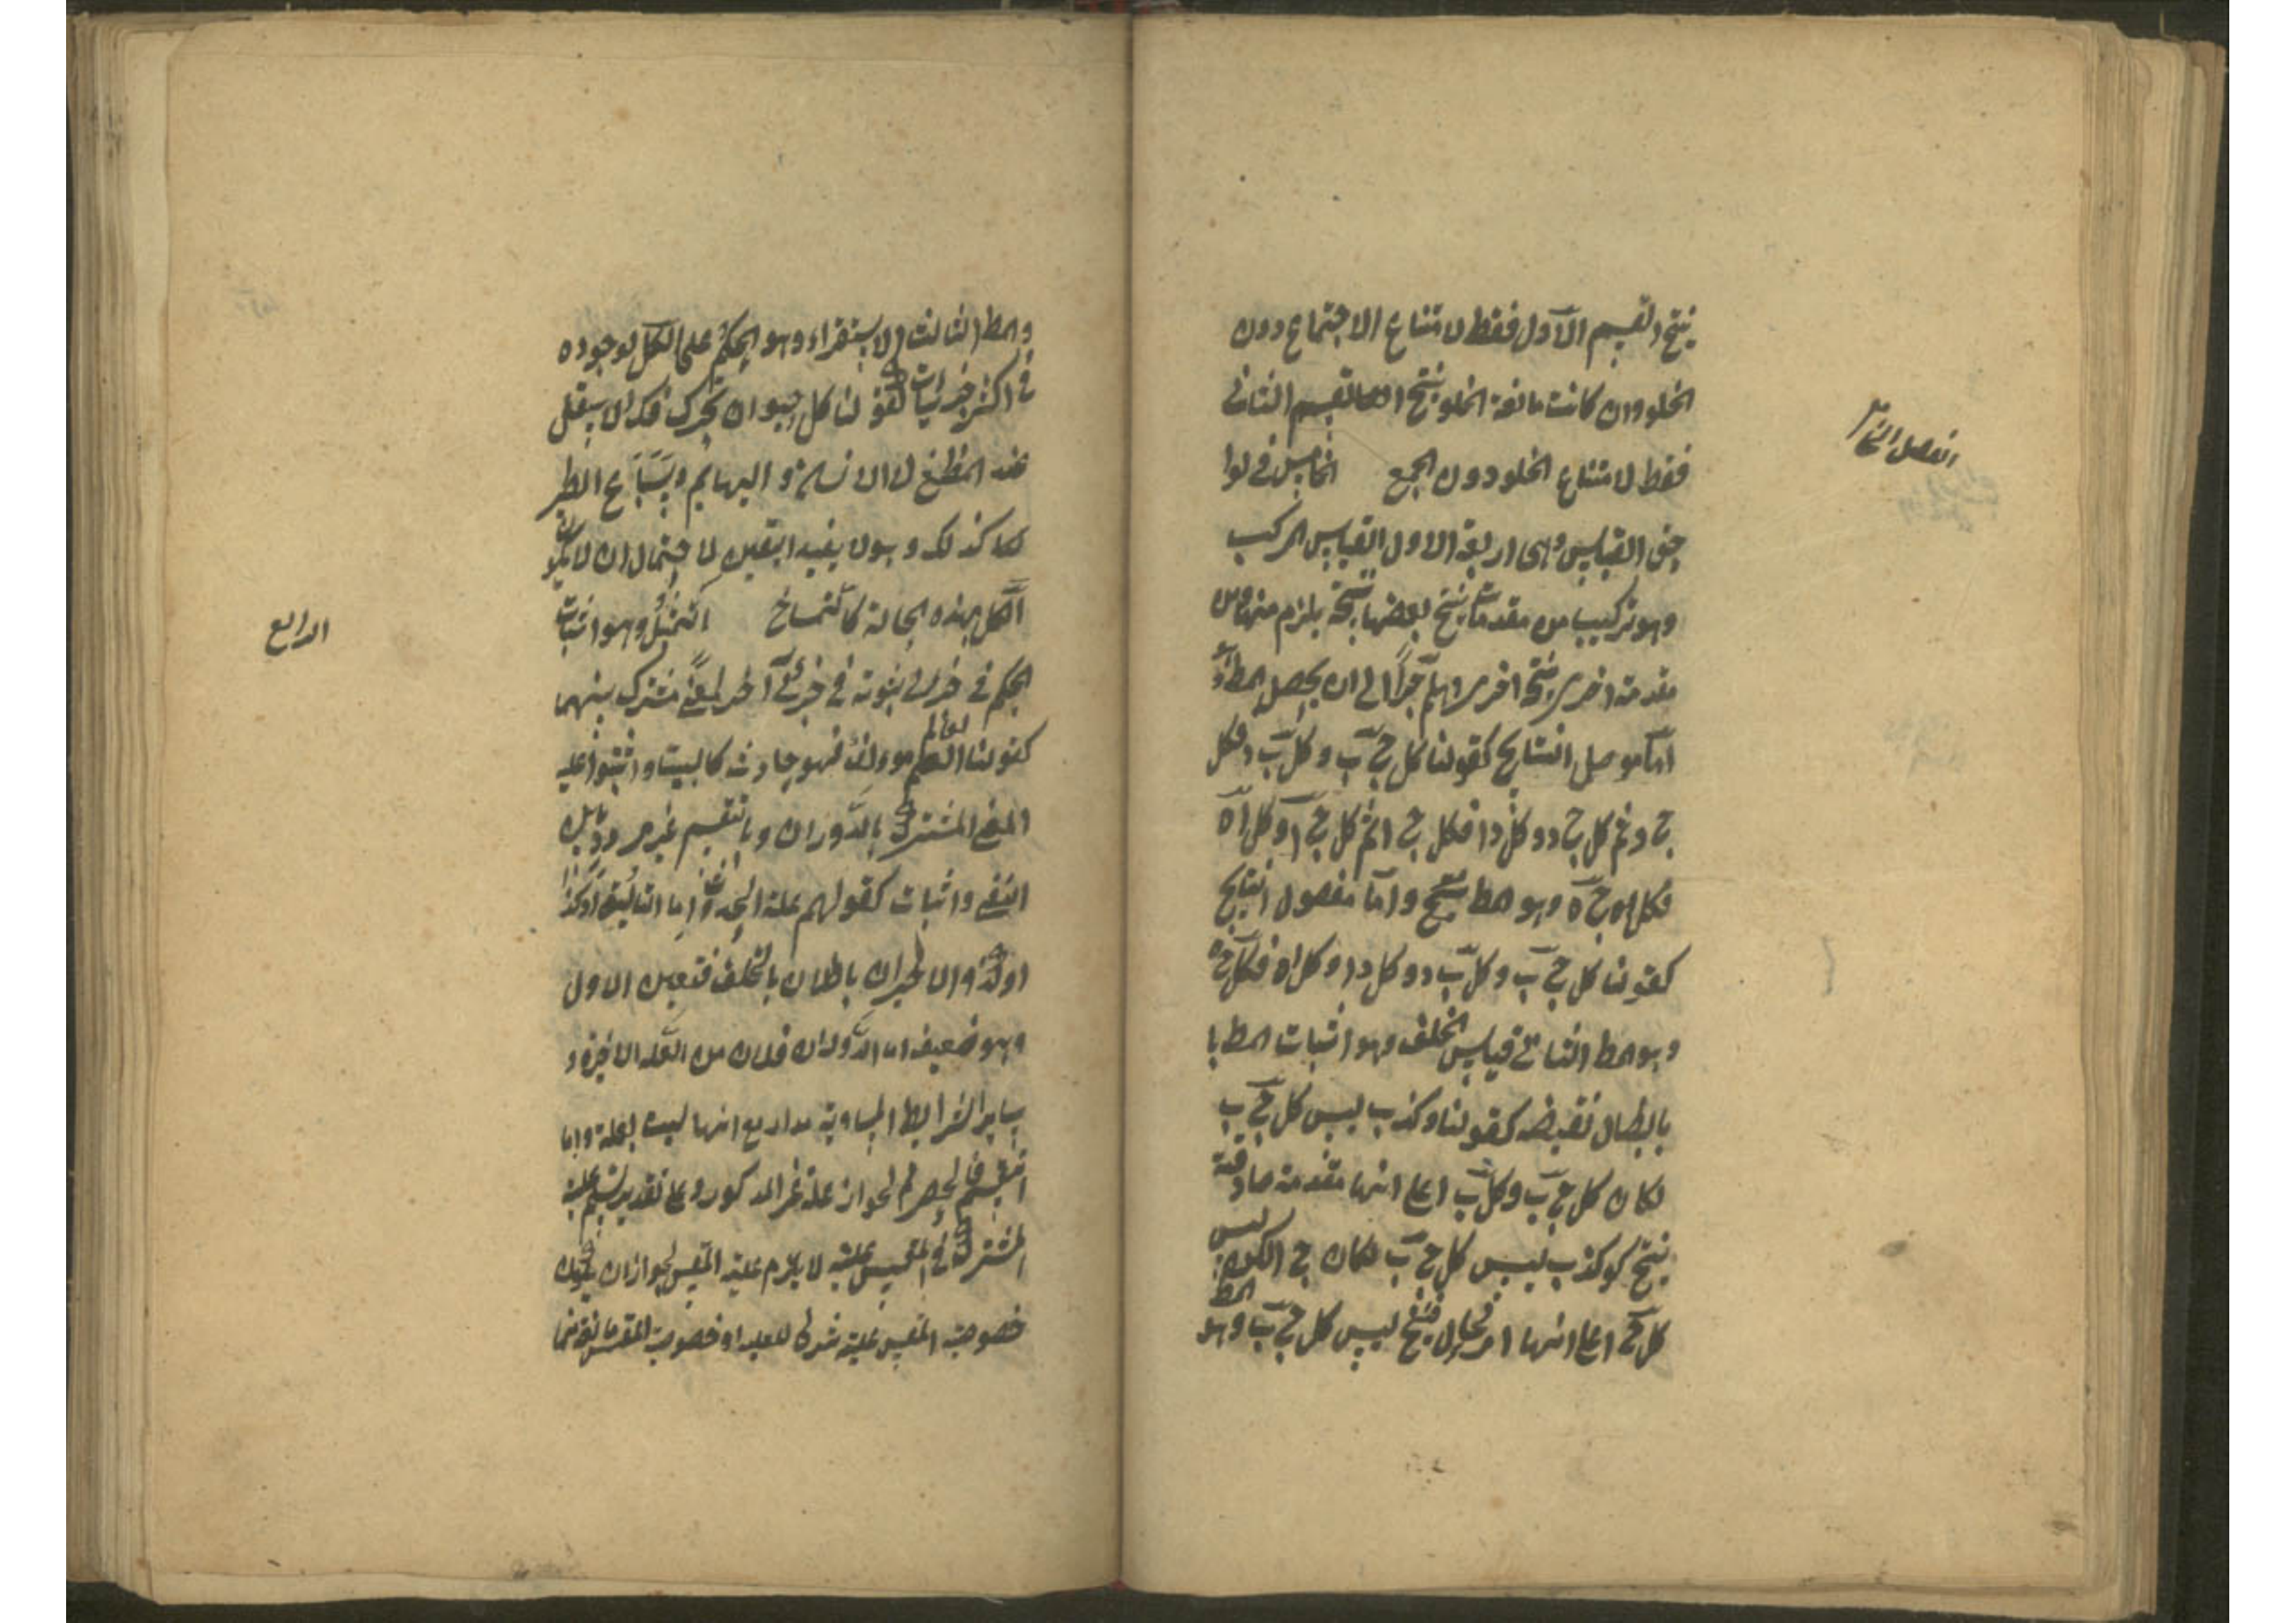 ينتج القسم الاول فقط لامتناع الاجتماع دون
الخلو وان كانت مانعة الخلو ينتج القسم الثانى
فقط لامتناع الخلو دون الجمع الخامس فى لوا
الفصل الخا
حق القياس وهى اربعة الاول القياس المركب
وهو تركيب من مقدمات ينتج بعضها نتيجة يلزم منها ومن
مقدمة اخرى نتيجة اخرى وهلم جرّا الى ان يحصل المط وهو
امّا موصل النتايج كقولنا كل ج ب وكل ب د فكل
ج د ثم كل ج د وكل د ا فكل ج ا ثم كل ج ا وكل ا ه
فكل ج ه وهو المط وامّا مفصول النتايج
كقولنا كل ج ب وكل ب د وكل د ا وكل ا ه فكل ج ه
وهو المط الثانى قياس الخلف وهو اثبات المط با
بابطال نقيضه كقولنا لو كذب ليس كل ج ب
لكان كل ج ب وكل ب ا على انها مقدمة صادقة
ينتج لو كذب ليس كل ج ب لكان ج ا لكن ليس
كل ج ا على انها امر محال فينتج ليس كل ج ب وهو المط
والمط الثالث الاستقراء وهو الحكم على الكل لوجوده
فى اكثر جزئياته كقولنا كل حيوان يحرك فكه الاسفل
عند المضغ لان الانسان والبهايم وسباع الطير
كلها كذلك وهو لا يفيد اليقين لاحتمال ان لا يكون
الكل بهذه الحالة كالتمساح التمثيل وهو اثبات
الرابع
الحكم فى جزئى لثبوته فى جزئى آخر لمعنى مشترك بينهما
كقولنا العالم مؤلف فهو حادث كالبيت واثبتوا علية
المعنى المشترك بالدوران وبالتقسيم غير مردد بين
النفى والاثبات كقولهم علة الحدوث اما التاليف او كذا
او كذا والاخيران باطلان بالتخلف فتعين الاول
وهو ضعيف اما الدوران فلان من العلة الاخيرة و
ساير الشرايط المساوية مدار مع انها ليست لعلة واما
التقسيم فالحصر ثم لجواز علة غير المذكور وعلى تقدير تسليم علية
المشترك فى المقيس عليه لا يلزم علية المقيس لجواز ان يكون
خصوصية المقيس عليه شرطا للعلية او خصوصية المقيس مانعة منها